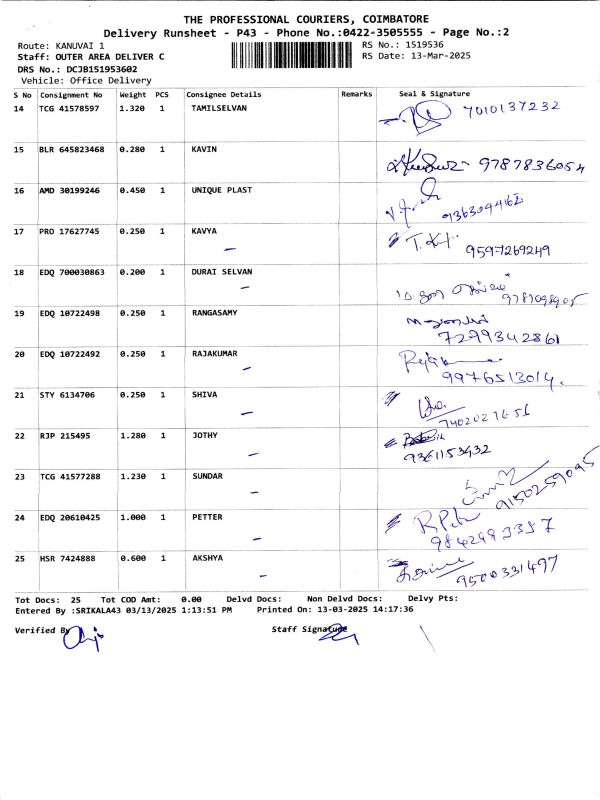 THE PROFESSIONAL COURIERS, COIMBATORE
Delivery Runsheet - P43 - Phone No.:0422-3505555 - Page No.:2
Route: KANUVAI 1
RS No.: 1519536
Staff: OUTER AREA DELIVER C
RS Date: 13-Mar-2025
DRS No.: DCJB151953602
Vehicle: Office Delivery
S No Consignment No Weight PCS Consignee Details Remarks Seal & Signature
14 TCG 41578597 1.320 1 TAMILSELVAN 7010137232
15 BLR 645823468 0.280 1 KAVIN 9787836054
16 AMD 30199246 0.450 1 UNIQUE PLAST
17 PRO 17627745 0.250 1 KAVYA 9597269249
18 EDQ 700030863 0.200 1 DURAI SELVAN
19 EDQ 10722498 0.250 1 RANGASAMY
7299342861
20 EDQ 10722492 0.250 1 RAJAKUMAR
9976513014.
21 STY 6134706 0.250 1 SHIVA
22 RJP 215495 1.280 1 JOTHY
9361153432
23 TCG 41577288 1.230 1 SUNDAR
9150259095
24 EDQ 20610425 1.000 1 PETTER
25 HSR 7424888 0.600 1 AKSHYA 9500331497
Tot Docs: 25 Tot COD Amt: 0.00 Delvd Docs: Non Delvd Docs: Delvy Pts:
Entered By :SRIKALA43 03/13/2025 1:13:51 PM Printed On: 13-03-2025 14:17:36
Verified By Staff Signature